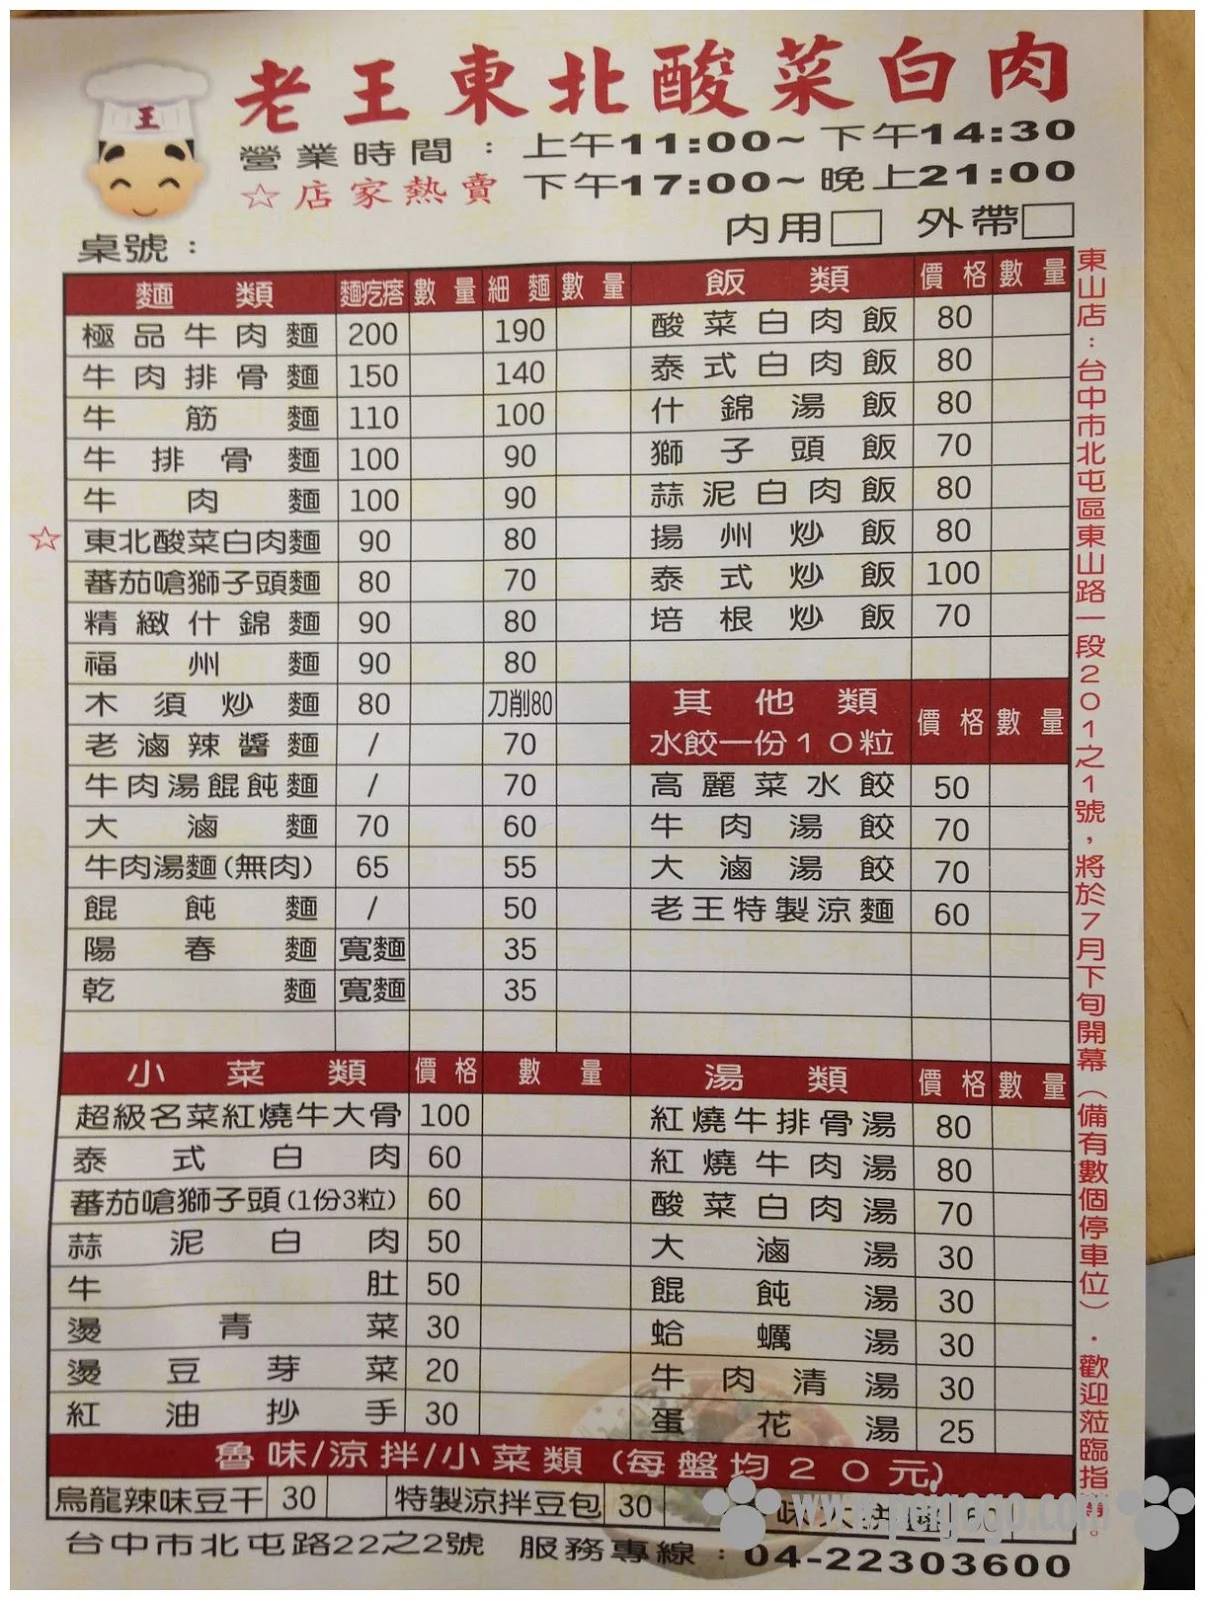 王
老王東北酸菜白肉
營業時間：上午11:00~下午14:30
☆店家熱賣 下午17:00~晚上21:00
桌號： 內用□ 外帶□
麵類 麵疙瘩 數量 細麵 數量
極品牛肉麵 200 190
牛肉排骨麵 150 140
牛筋麵 110 100
牛排骨麵 100 90
牛肉麵 100 90
☆ 東北酸菜白肉麵 90 80
蕃茄嗆獅子頭麵 80 70
精緻什錦麵 90 80
福州麵 90 80
木須炒麵 80 刀削80
老滷辣醬麵 / 70
牛肉湯餛飩麵 / 70
大滷麵 70 60
牛肉湯麵(無肉) 65 55
餛飩麵 / 50
陽春麵 寬麵 35
乾麵 寬麵 35
飯類 價格 數量
酸菜白肉飯 80
泰式白肉飯 80
什錦湯飯 80
獅子頭飯 70
蒜泥白肉飯 80
揚州炒飯 80
泰式炒飯 100
培根炒飯 70
其他類 價格 數量
水餃一份10粒
高麗菜水餃 50
牛肉湯餃 70
大滷湯餃 70
老王特製涼麵 60
小菜類 價格 數量
超級名菜紅燒牛大骨 100
泰式白肉 60
蕃茄嗆獅子頭(1份3粒) 60
蒜泥白肉 50
牛肚 50
燙青菜 30
燙豆芽菜 20
紅油抄手 30
湯類 價格 數量
紅燒牛排骨湯 80
紅燒牛肉湯 80
酸菜白肉湯 70
大滷湯 30
餛飩湯 30
蛤蠣湯 30
牛肉清湯 30
蛋花湯 25
魯味/涼拌/小菜類(每盤均20元)
烏龍辣味豆干 30 特製涼拌豆包 30 味 60
台中市北屯路22之2號 服務專線：04-22303600
東山店：台中市北屯區東山路一段201之1號，將於7月下旬開幕(備有數個停車位)．歡迎蒞臨指導。
www.peigogo.com